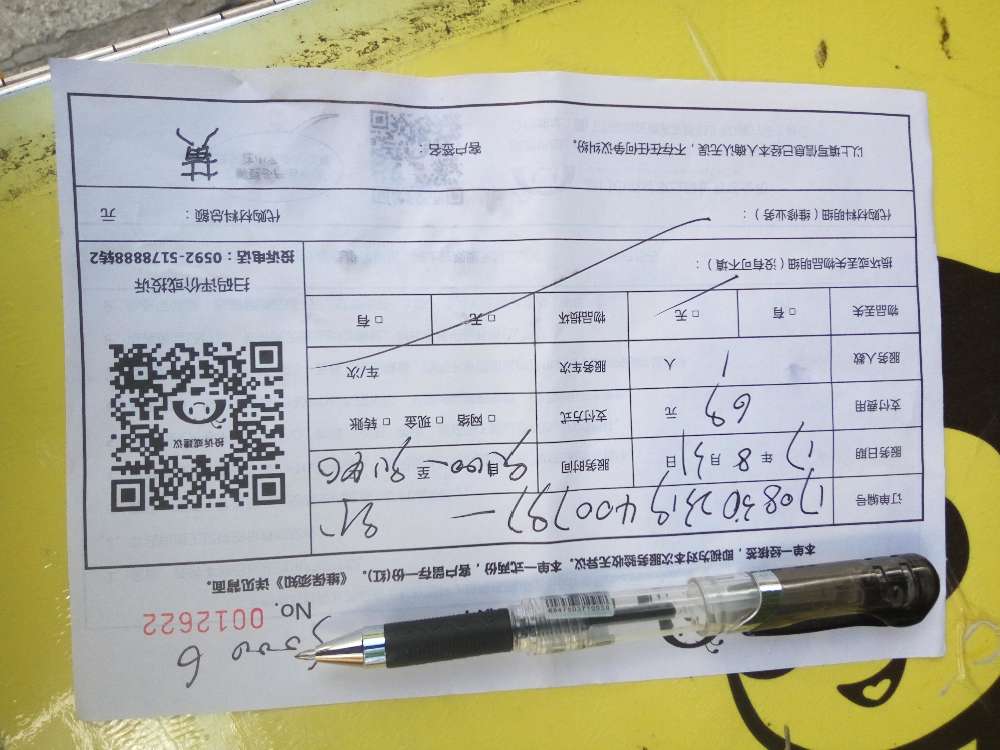 No. 0012622
本单一经接签，即视为对本次服务验收无异议。本单一式两份，客户留存一份(红)。《维保须知》详见背面。
订单编号
服务日期 17 年 8 月 31 日 服务时间 自 至
支付费用 69 元 支付方式 □ 网络 □ 现金 □ 转账
服务人数 1 人 服务车次 车/次
物品丢失 □ 有 □ 无 物品损坏 □ 无 □ 有
损坏或丢失物品明细（没有可不填）：
投诉或建议
扫码评价或投诉
投诉电话：0592-5178888转2
代购材料明细（维修业务）： 代购材料总额： 元
以上填写信息已经本人确认无误，不存在任何争议纠纷。 客户签名： 黄